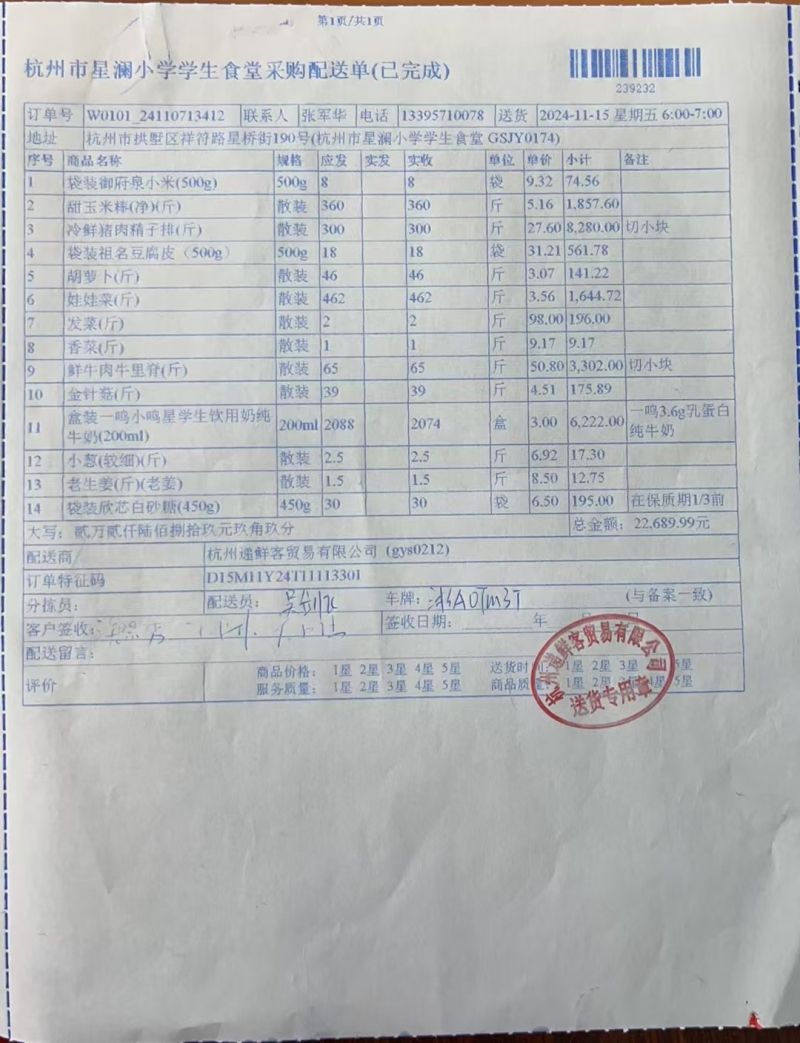 第1页/共1页
杭州市星澜小学学生食堂采购配送单(已完成)
239232
订单号 W0101_24110713412 联系人 张军华 电话 13395710078 送货 2024-11-15 星期五 6:00-7:00
地址 杭州市拱墅区祥符路星桥街190号(杭州市星澜小学学生食堂 GSJY0174)
序号 商品名称 规格 应发 实发 实收 单位 单价 小计 备注
1 袋装御府泉小米(500g) 500g 8 8 袋 9.32 74.56
2 甜玉米棒(净)(斤) 散装 360 360 斤 5.16 1,857.60
3 冷鲜猪肉精子排(斤) 散装 300 300 斤 27.60 8,280.00 切小块
4 袋装祖名豆腐皮（500g） 500g 18 18 袋 31.21 561.78
5 胡萝卜(斤) 散装 46 46 斤 3.07 141.22
6 娃娃菜(斤) 散装 462 462 斤 3.56 1,644.72
7 发菜(斤) 散装 2 2 斤 98.00 196.00
8 香菜(斤) 散装 1 1 斤 9.17 9.17
9 鲜牛肉牛里脊(斤) 散装 65 65 斤 50.80 3,302.00 切小块
10 金针菇(斤) 散装 39 39 斤 4.51 175.89
11 盒装一鸣小鸣星学生饮用奶纯牛奶(200ml) 200ml 2088 2074 盒 3.00 6,222.00 一鸣3.6g乳蛋白纯牛奶
12 小葱(较细)(斤) 散装 2.5 2.5 斤 6.92 17.30
13 老生姜(斤)(老姜) 散装 1.5 1.5 斤 8.50 12.75
14 袋装欣芯白砂糖(450g) 450g 30 30 袋 6.50 195.00 在保质期1/3前
大写：贰万贰仟陆佰捌拾玖元玖角玖分 总金额：22,689.99元
配送商 杭州递鲜客贸易有限公司 (gys0212)
订单特征码 D15M11Y24T11113301
分拣员： 配送员： 车牌： (与备案一致)
客户签收： 签收日期： 年 月 日
配送留言：
评价 商品价格： 1星 2星 3星 4星 5星 送货时间： 1星 2星 3星 5星
服务质量： 1星 2星 3星 4星 5星 商品质量： 1星 2星 4星 5星
杭州递鲜客贸易有限公司
送货专用章